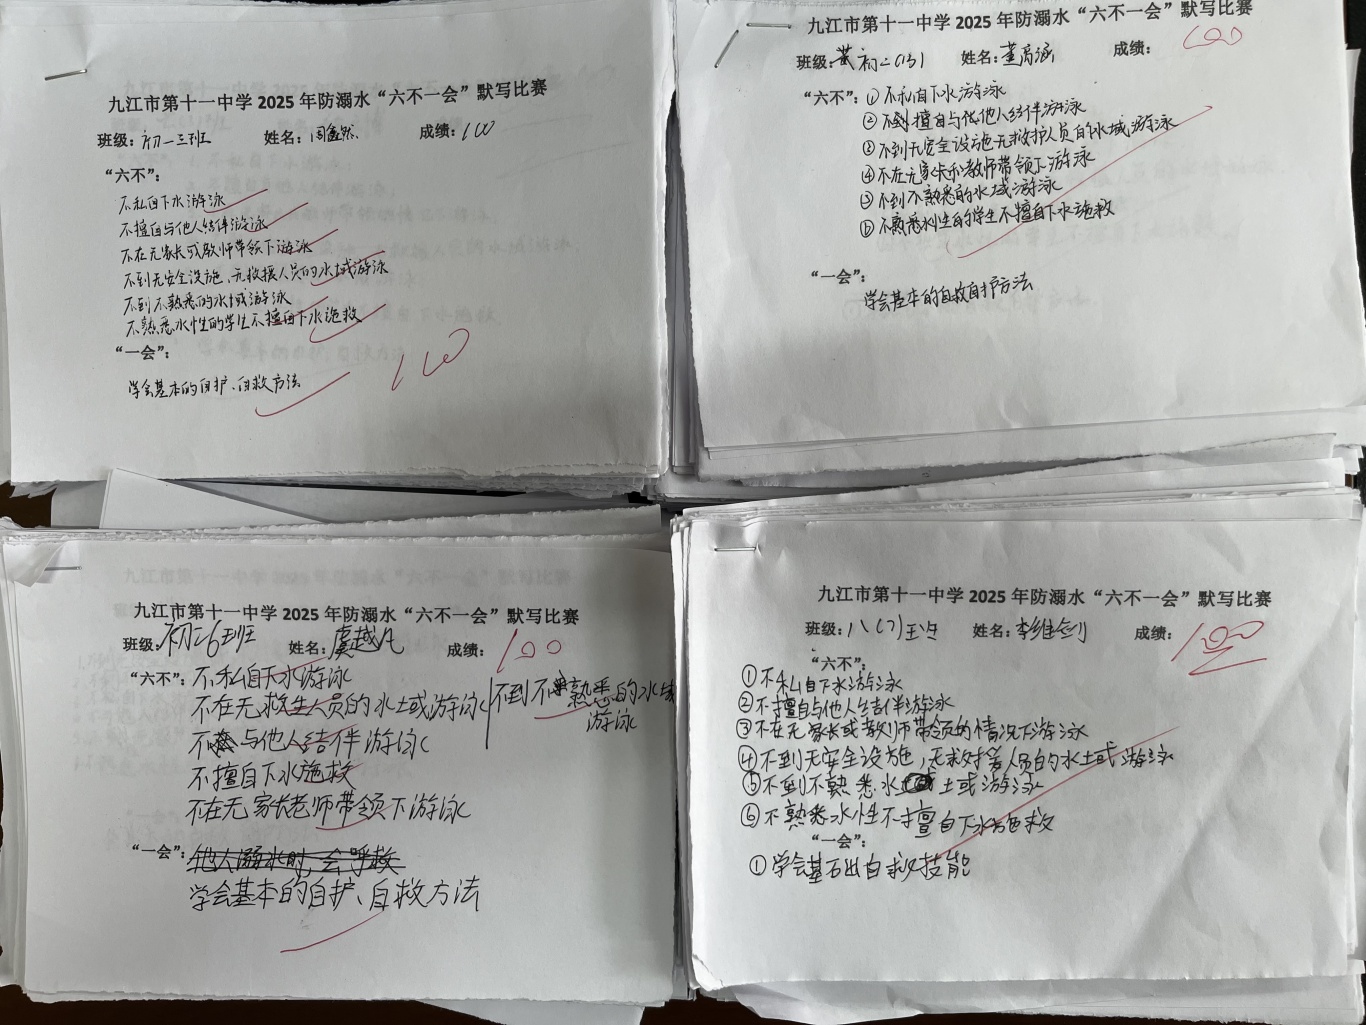 九江市第十一中学 2025 年防溺水“六不一会”默写比赛
班级：初二三班 姓名： 成绩：100
“六不”：
不私自下水游泳
不擅自与他人结伴游泳
不在无家长或教师带领下游泳
不到无安全设施、无救援人员的水域游泳
不到不熟悉的水域游泳
不熟悉水性的学生不擅自下水施救
“一会”：
学会基本的自护、自救方法
100
九江市第十一中学 2025 年防溺水“六不一会”默写比赛
班级： 初二(3) 姓名：董高涵 成绩：100
“六不”：①不私自下水游泳
②不到擅自与他人结伴游泳
③不到无安全设施无救护人员的水域游泳
④不在无家长和教师带领下游泳
⑤不到不熟悉的水域游泳
⑥不熟悉水性的学生不擅自下水施救
“一会”：
学会基本的自救自护方法
九江市第十一中学 2025 年防溺水“六不一会”默写比赛
班级：初二6班 姓名：虞越凡 成绩：100
“六不”：不私自下水游泳
不在无救生人员的水域游泳 不到不熟悉的水域
游泳
不与他人结伴游泳
不擅自下水施救
不在无家长老师带领下游泳
“一会”：他人溺水时，会呼救
学会基本的自护、自救方法
九江市第十一中学 2025 年防溺水“六不一会”默写比赛
班级：八(7)班 姓名：李维剑 成绩：100
“六不”：
①不私自下水游泳
②不擅自与他人结伴游泳
③不在无家长或教师带领的情况下游泳
④不到无安全设施，无救援人员的水域游泳
⑤不到不熟悉水域游泳
⑥不熟悉水性不擅自下水施救
“一会”：
①学会基础自救技能